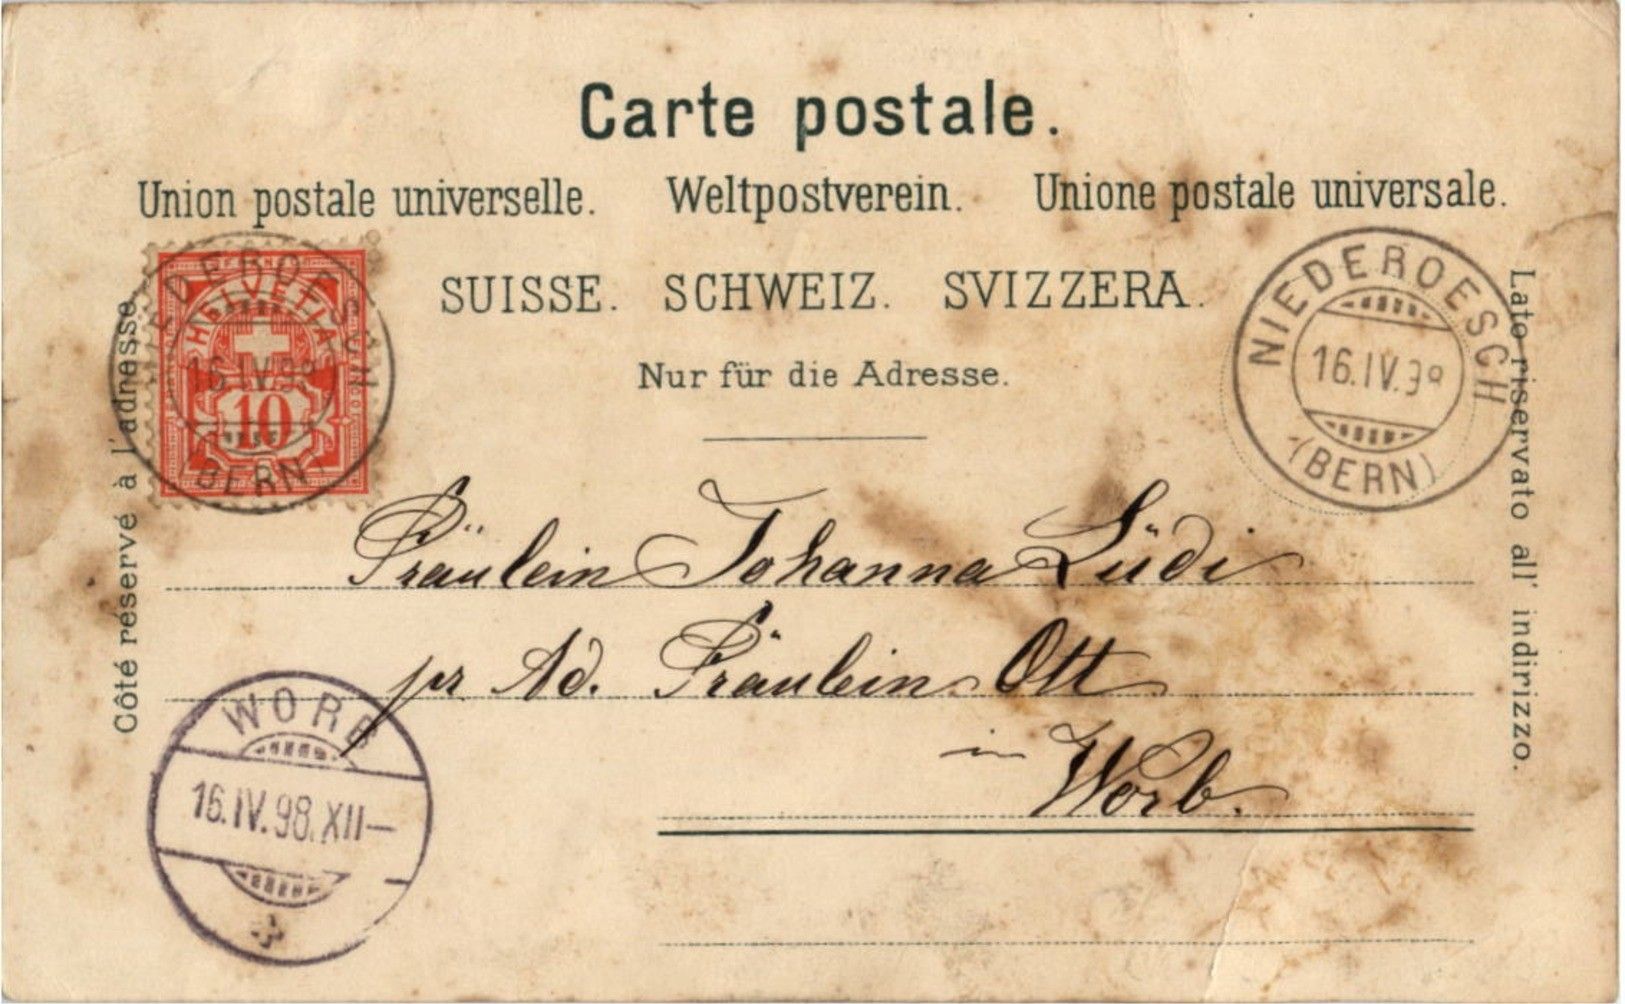 Carte postale.
Union postale universelle. Weltpostverein. Unione postale universale.
SUISSE. SCHWEIZ. SVIZZERA.
Nur für die Adresse.
HELVETIA
10
16.IV.98
(BERN)
NIEDEROESCH
16.IV.98
(BERN)
Côté réservé à l'adresse.
Lato riservato all' indirizzo.
Fräulein Johanna Lüdi
pr Ad. Fräulein Ott
in Worb.
WORB
16.IV.98.XII—